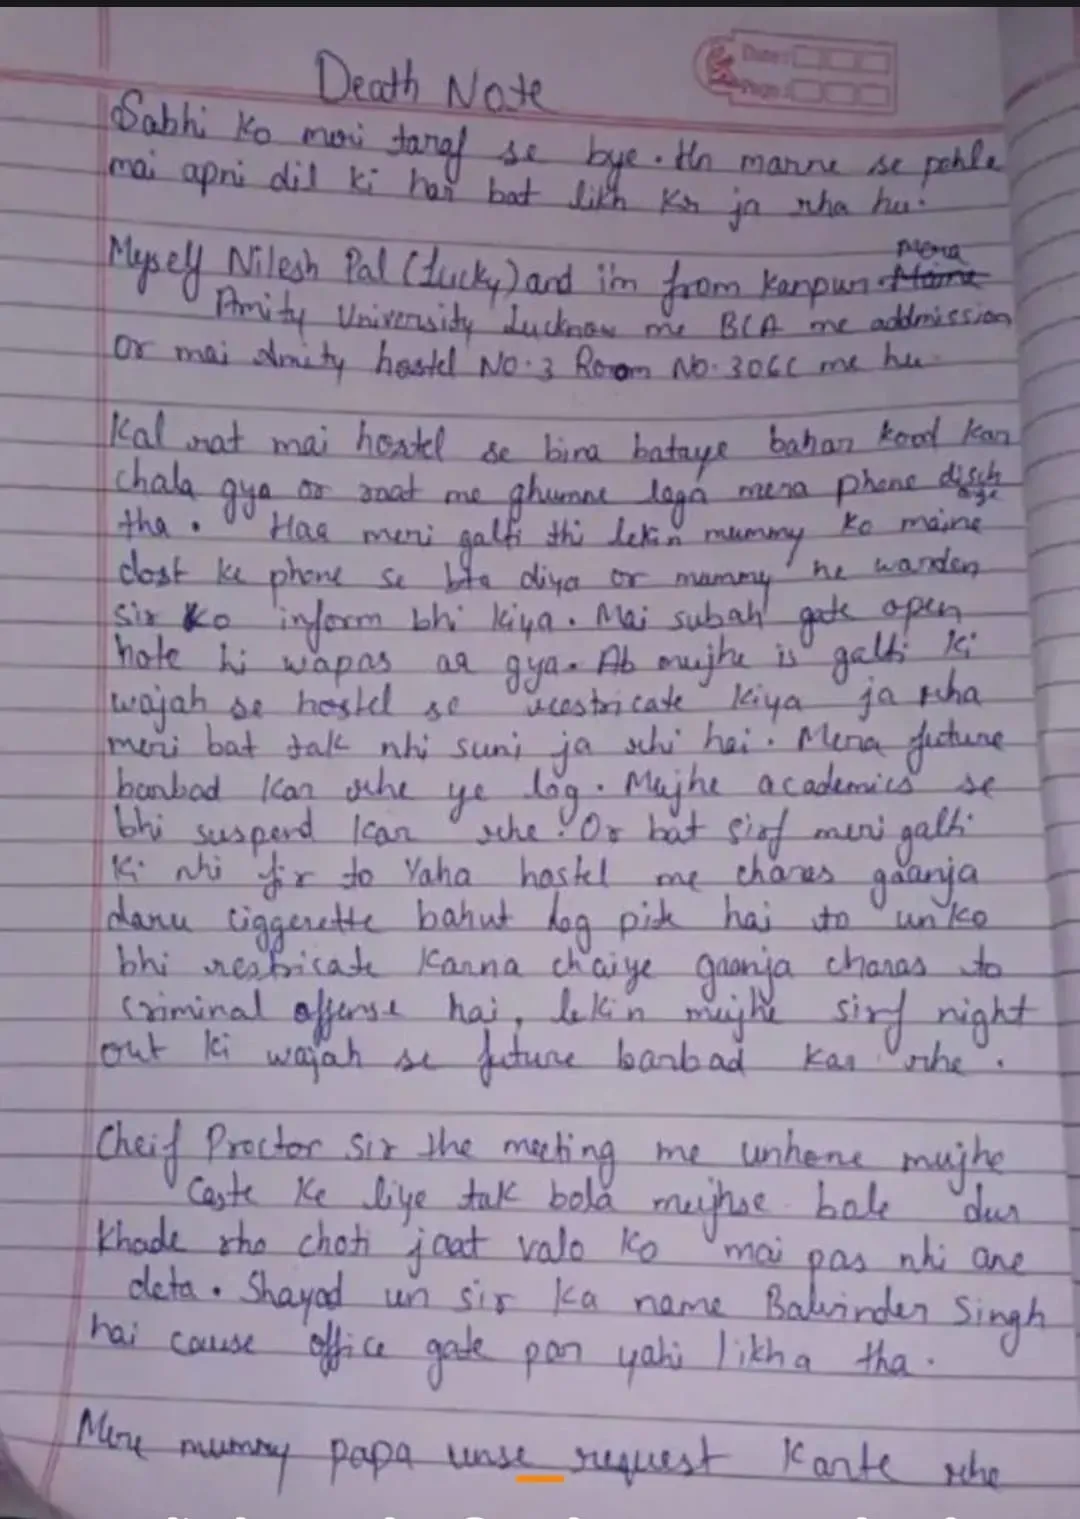 Death Note
Date:
Page:
Sabhi ko meri taraf se bye. Hn marne se pehle
mai apni dil ki har bat likh kr ja rha hu.
Myself Nilesh Pal (Lucky) and i'm from kanpur. Mera
Amity University Lucknow me BCA me addmission
or mai Amity hostel No.3 Room No. 306C me hu.
Kal rat mai hostel se bina bataye bahar kood kar
chala gya or raat me ghumne laga mera phone disch
arge
tha. Haa meri galti thi lekin mummy ko maine
dost ke phone se bta diya or mummy ne warden
sir ko inform bhi kiya. Mai subah gate open
hote hi wapas aa gya. Ab mujhe is galti ki
wajah se hostel se restricate kiya ja rha
meri bat tak nhi suni ja rhi hai. Mera future
barbad kar rhe ye log. Mujhe academics se
bhi suspend kar rhe. Or bat sirf meri galti
ki nhi fir to Yaha hostel me charas gaanja
daru ciggerette bahut log pite hai to unko
bhi restricate karna chaiye gaanja charas to
criminal offense hai, lekin mujhe sirf night
out ki wajah se future barbad kar rhe.
Cheif Proctor sir the meeting me unhone mujhe
Caste ke liye tak bola mujhse bole dur
khade rho choti jaat valo ko mai pas nhi ane
deta. Shayad un sir ka name Balvinder Singh
hai cause office gate par yahi likha tha.
Mere mummy papa unse request karte rhe